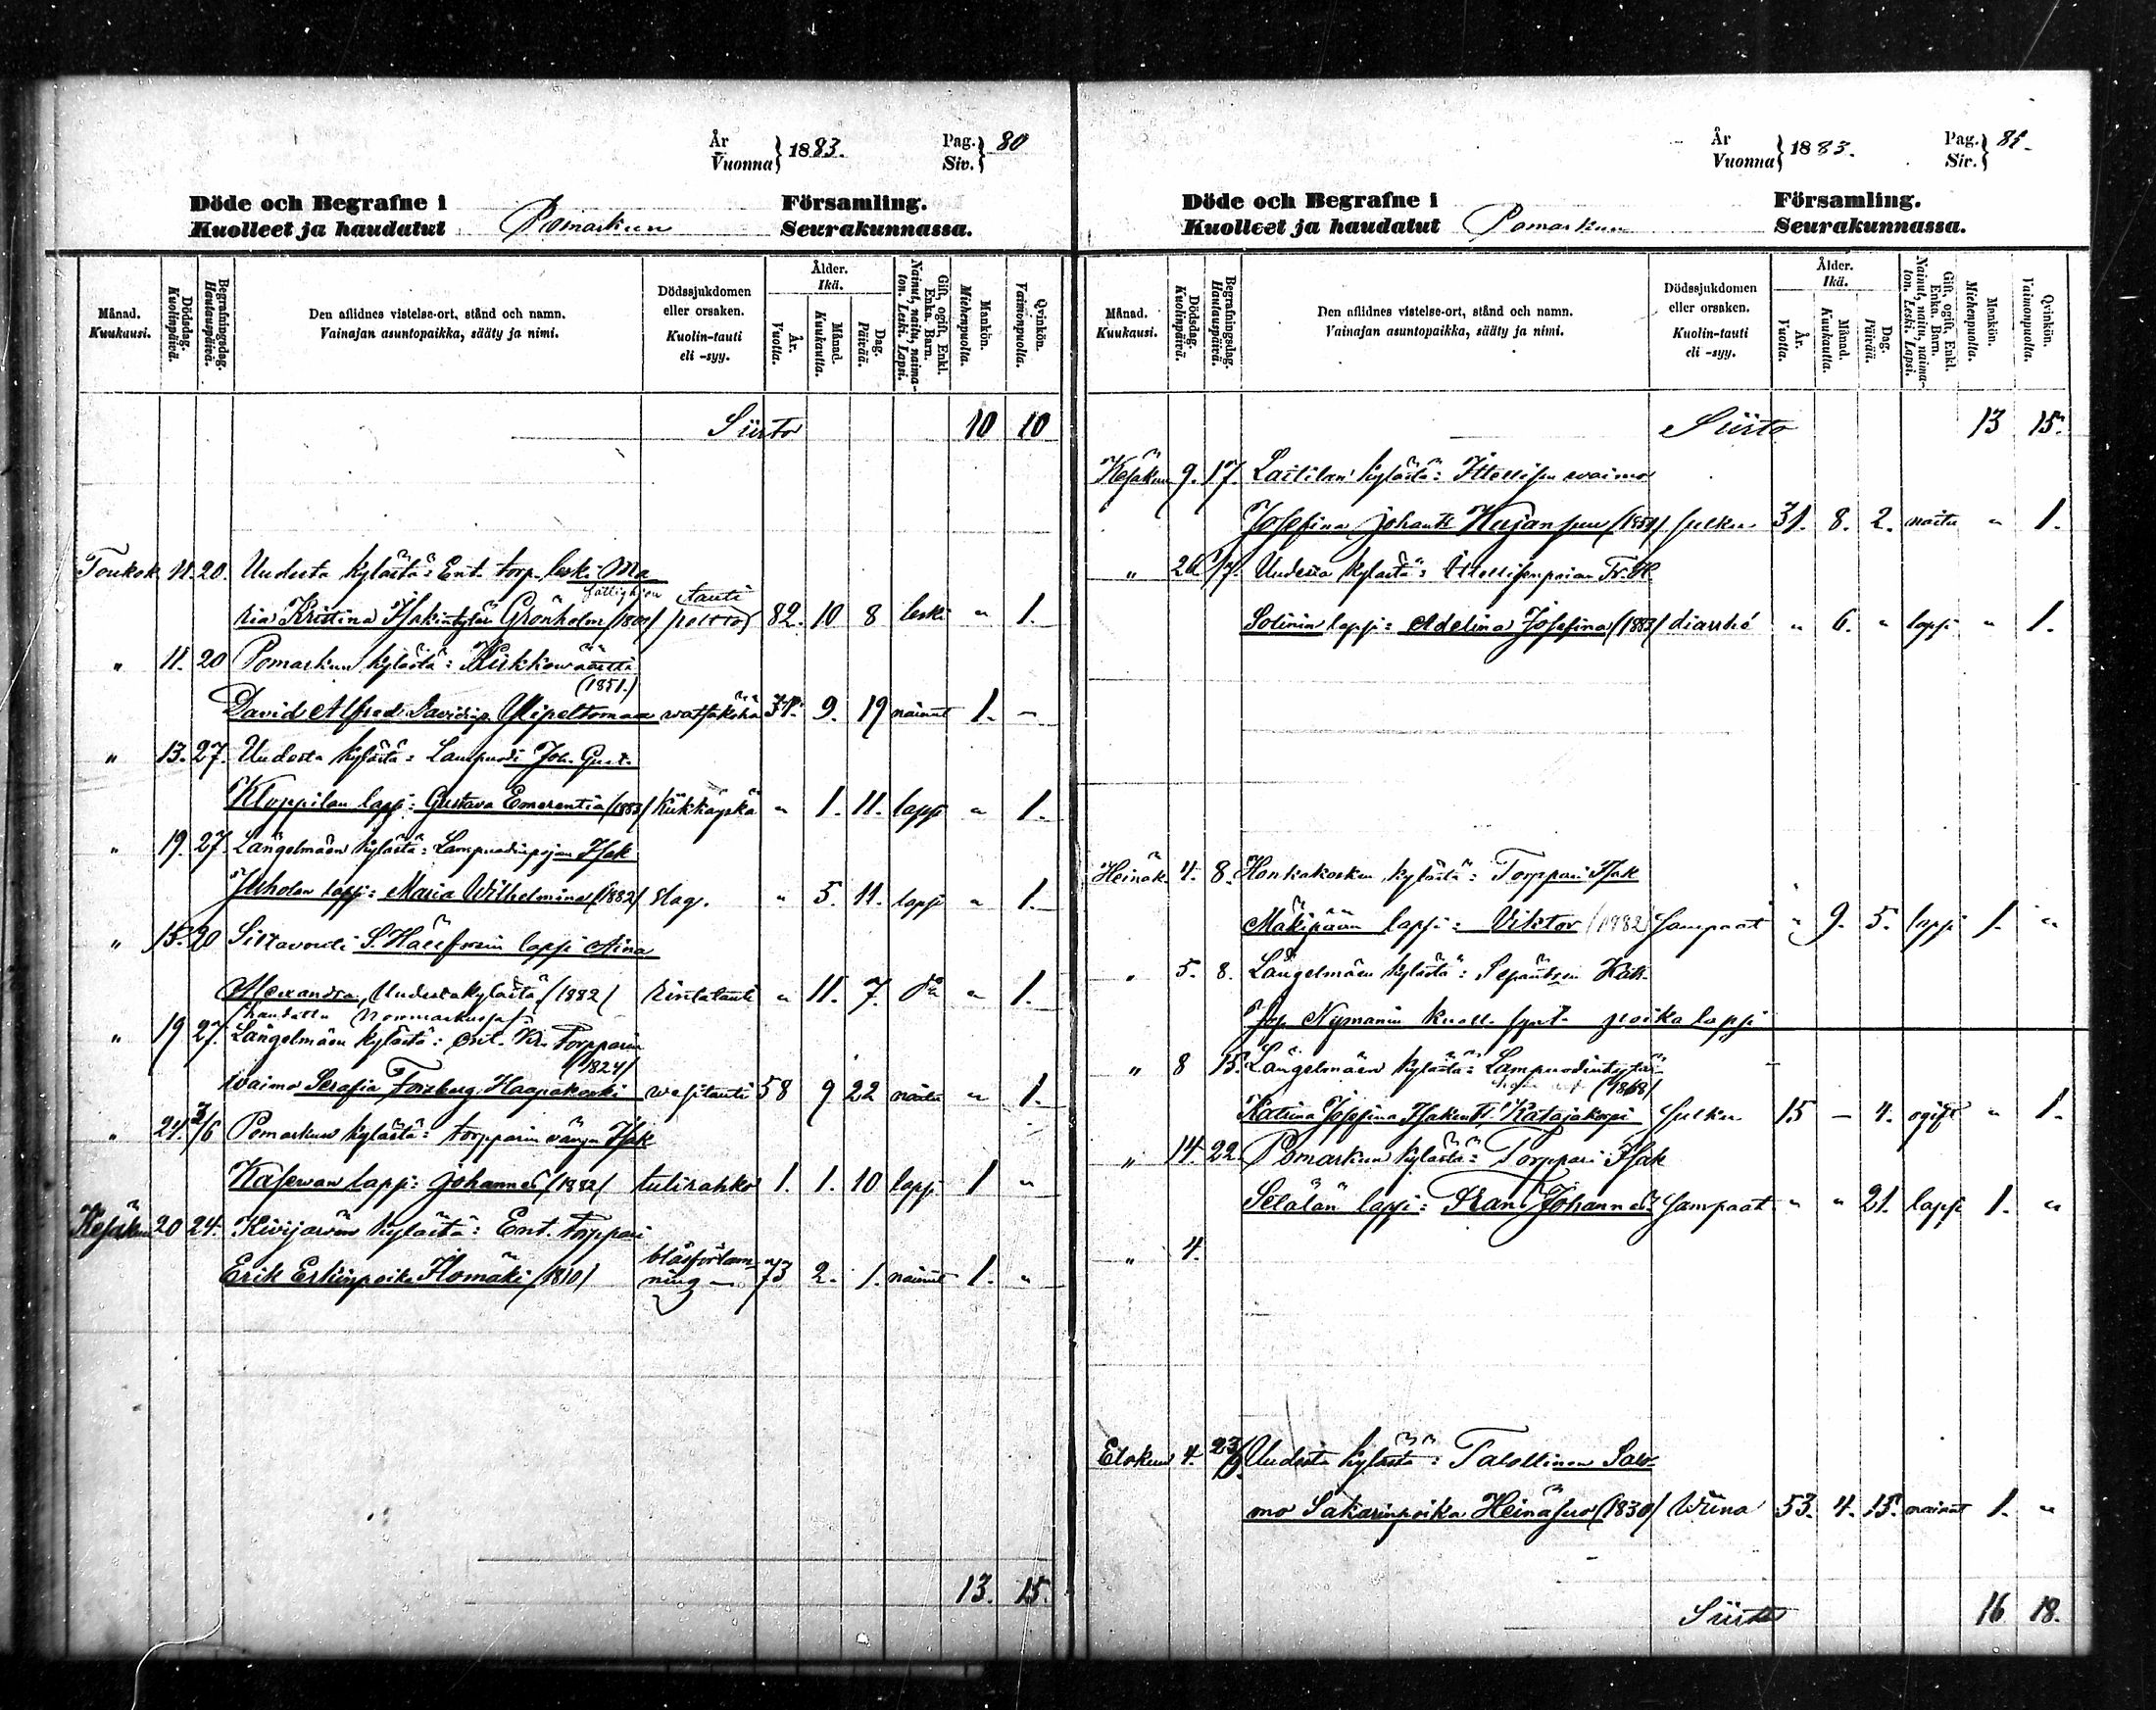 År
Vuonna } 1883.
Pag.
Siv. } 80
Döde och Begrafne i
Kuolleet ja haudatut Pomarkun
Församling.
Seurakunnassa.
Månad. Kuukausi.
Dödsdag. Kuolinpäivä.
Begrafningsdag. Hautauspäivä.
Den aflidnes vistelse-ort, stånd och namn.
Vainajan asuntopaikka, sääty ja nimi.
Dödssjukdomen eller orsaken.
Kuolin-tauti eli -syy.
Ålder. Ikä.
År. Vuotta.
Månad. Kuukautta.
Dag. Päivää.
Gift, ogift, Enkl. Enka. Barn.
Nainut, naitu, naimaton. Leski. Lapsi.
Mankön. Miehenpuolta.
Qvinkön. Vaimonpuolta.
Siirto 10 10
Toukok. 11. 20. Uudesta kylästä: Ent. torp. leski Ma-
ria Kristina Isakintytär Grönholm (1800) tauti 82. 10 8 leski " 1.
" 11. 20 Pomarkun kylästä: Kirkkowäärtti
(1851.)
David Alfred Davidinp. Ylipeltomaa watsakoha 31. 9. 19 nainut 1. –
" 13. 27. Uudesta kylästä: Lampuodi Joh. Gust.
Kloppilan lapsi: Gustava Emerentia (1883) Kükkäyskä " 1. 11. lapsi " 1.
" 19. 27. Längelmäen kylästä: Lampuodinpojan Isak
Jusholan lapsi: Maria Wilhelmina (1882) slag. " 5. 11. lapsi " 1.
" 15. 20 Siltavouti S. Hällforsin lapsi Aina
Alexandra, Uudestakylästä (1882) rintatauti " 11. 7. " 1.
haudattu Norrmarkussa
" 19 27. Längelmäen kylästä: Torpparin
(1824)
waimo Serafia Forsberg Haapakoski wesitauti 58 9 22 naitu " 1.
" 24. 3/6 Pomarkun kylästä: torpparin vävyn Isak
Kasewan lapsi: Johannes (1882) tulirahko 1. 1. 10 lapsi 1 "
Kesäkuu 20 24. Kivijärven kylästä: Ent. torppari
Erik Erkinpoika Ilomäki (1810) blåsförlam-
ning – 73 2. 1. nainut 1. "
13. 15.
År
Vuonna } 1883.
Pag.
Siv. } 81.
Döde och Begrafne i
Kuolleet ja haudatut Pomarkun
Församling.
Seurakunnassa.
Månad. Kuukausi.
Dödsdag. Kuolinpäivä.
Begrafningsdag. Hautauspäivä.
Den aflidnes vistelse-ort, stånd och namn.
Vainajan asuntopaikka, sääty ja nimi.
Dödssjukdomen eller orsaken.
Kuolin-tauti eli -syy.
Ålder. Ikä.
År. Vuotta.
Månad. Kuukautta.
Dag. Päivää.
Gift, ogift, Enkl. Enka. Barn.
Nainut, naitu, naimaton. Leski. Lapsi.
Mankön. Miehenpuolta.
Qvinkön. Vaimonpuolta.
Siirto 13 15.
Kesäkuu 9. 17. Laitilan kylästä: Ittellisen waimo
Josefina Johant. Harjansuu (1851) sulku 31. 8. 2. naitu " 1.
" 26 1/7. Uudesta kylästä: Ittellisenpojan Fr. W.
Solinin lapsi: Adelina Josefina (1882) diarrhé " 6. " lapsi " 1.
Heinäk. 4. 8. Honkakosken kylästä: Torppari Isak
Mäkipään lapsi: Viktor (1882) sampaat " 9. 5. lapsi 1. "
" 5. 8. Längelmäen kylästä: Sepäntsen
Jos. Nymanin kuoll. synt. poika lapsi
" 8 15. Längelmäen kylästä: Lampuodintytär
(1868)
Katrina Josefina Isakint. Katajakorpi sulku 15 – 4. ogift " 1.
" 14. 22. Pomarkun kylästä: Torppari Isak
Selälän lapsi: Frans Johannes sampaat " " 21. lapsi 1. "
" 4.
Elokuu 4. 23/9 Uudesta kylästä: Talollinen Salo-
mo Sakarinpoika Heinäsuo (1830) Wiina 53. 4. 15. nainut 1. "
Siirto 16 18.